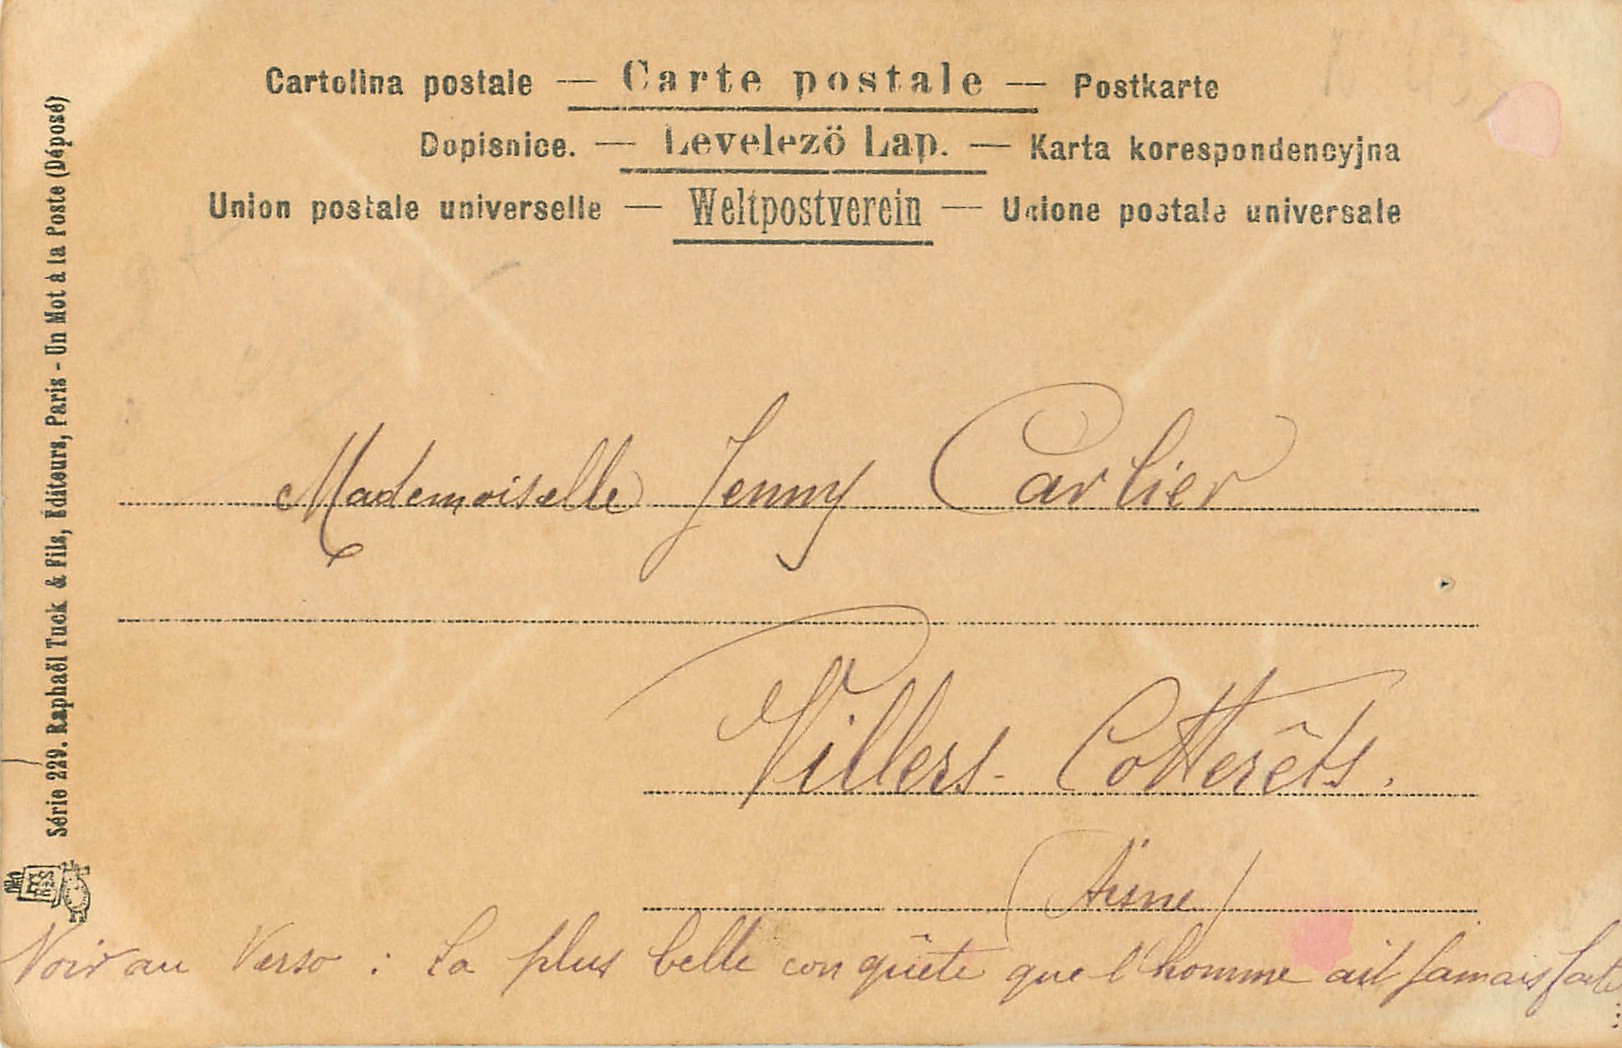 Cartolina postale — Carte postale — Postkarte
Dopisnice. — Levelezö Lap. — Karta korespondencyjna
Union postale universelle — Weltpostverein — Unione postale universale
Série 229. Raphaël Tuck & Fils, Éditeurs, Paris - Un Mot à la Poste (Déposé)
Mademoiselle Jenny Carlier
Villers-Cotterêts.
(Aisne)
Voir au Verso : La plus belle conquête que l'homme ait jamais faite